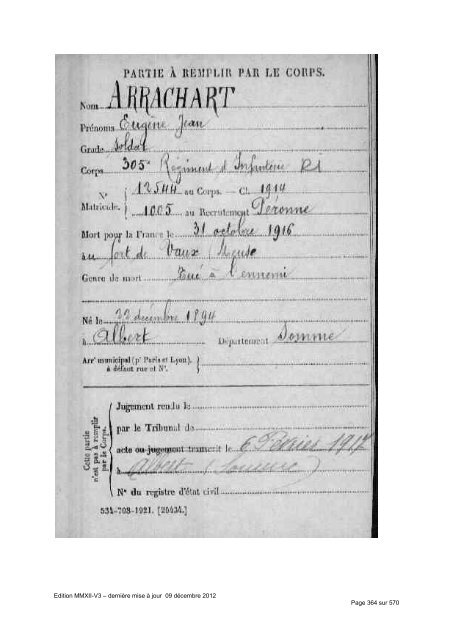 PARTIE À REMPLIR PAR LE CORPS.
Nom ARRACHART
Prénoms Eugène Jean
Grade Soldat
Corps 305e Régiment d'Infanterie
N° Matricule. 12544 au Corps. — Cl. 1914
1005 au Recrutement Péronne
Mort pour la France le 31 octobre 1916
au fort de Vaux (Meuse
Genre de mort Tué à l'ennemi
Né le 22 décembre 1894
à Albert Département Somme
Arrt municipal (pr Paris et Lyon),
à défaut rue et N°.
Cette partie n'est pas à remplir par le Corps.
Jugement rendu le
par le Tribunal de
acte ou jugement transcrit le 6 Février 1917
à Albert (Somme)
N° du registre d'état civil
534-708-1921. [26434.]
Edition MMXII-V3 – dernière mise à jour 09 décembre 2012
Page 364 sur 570